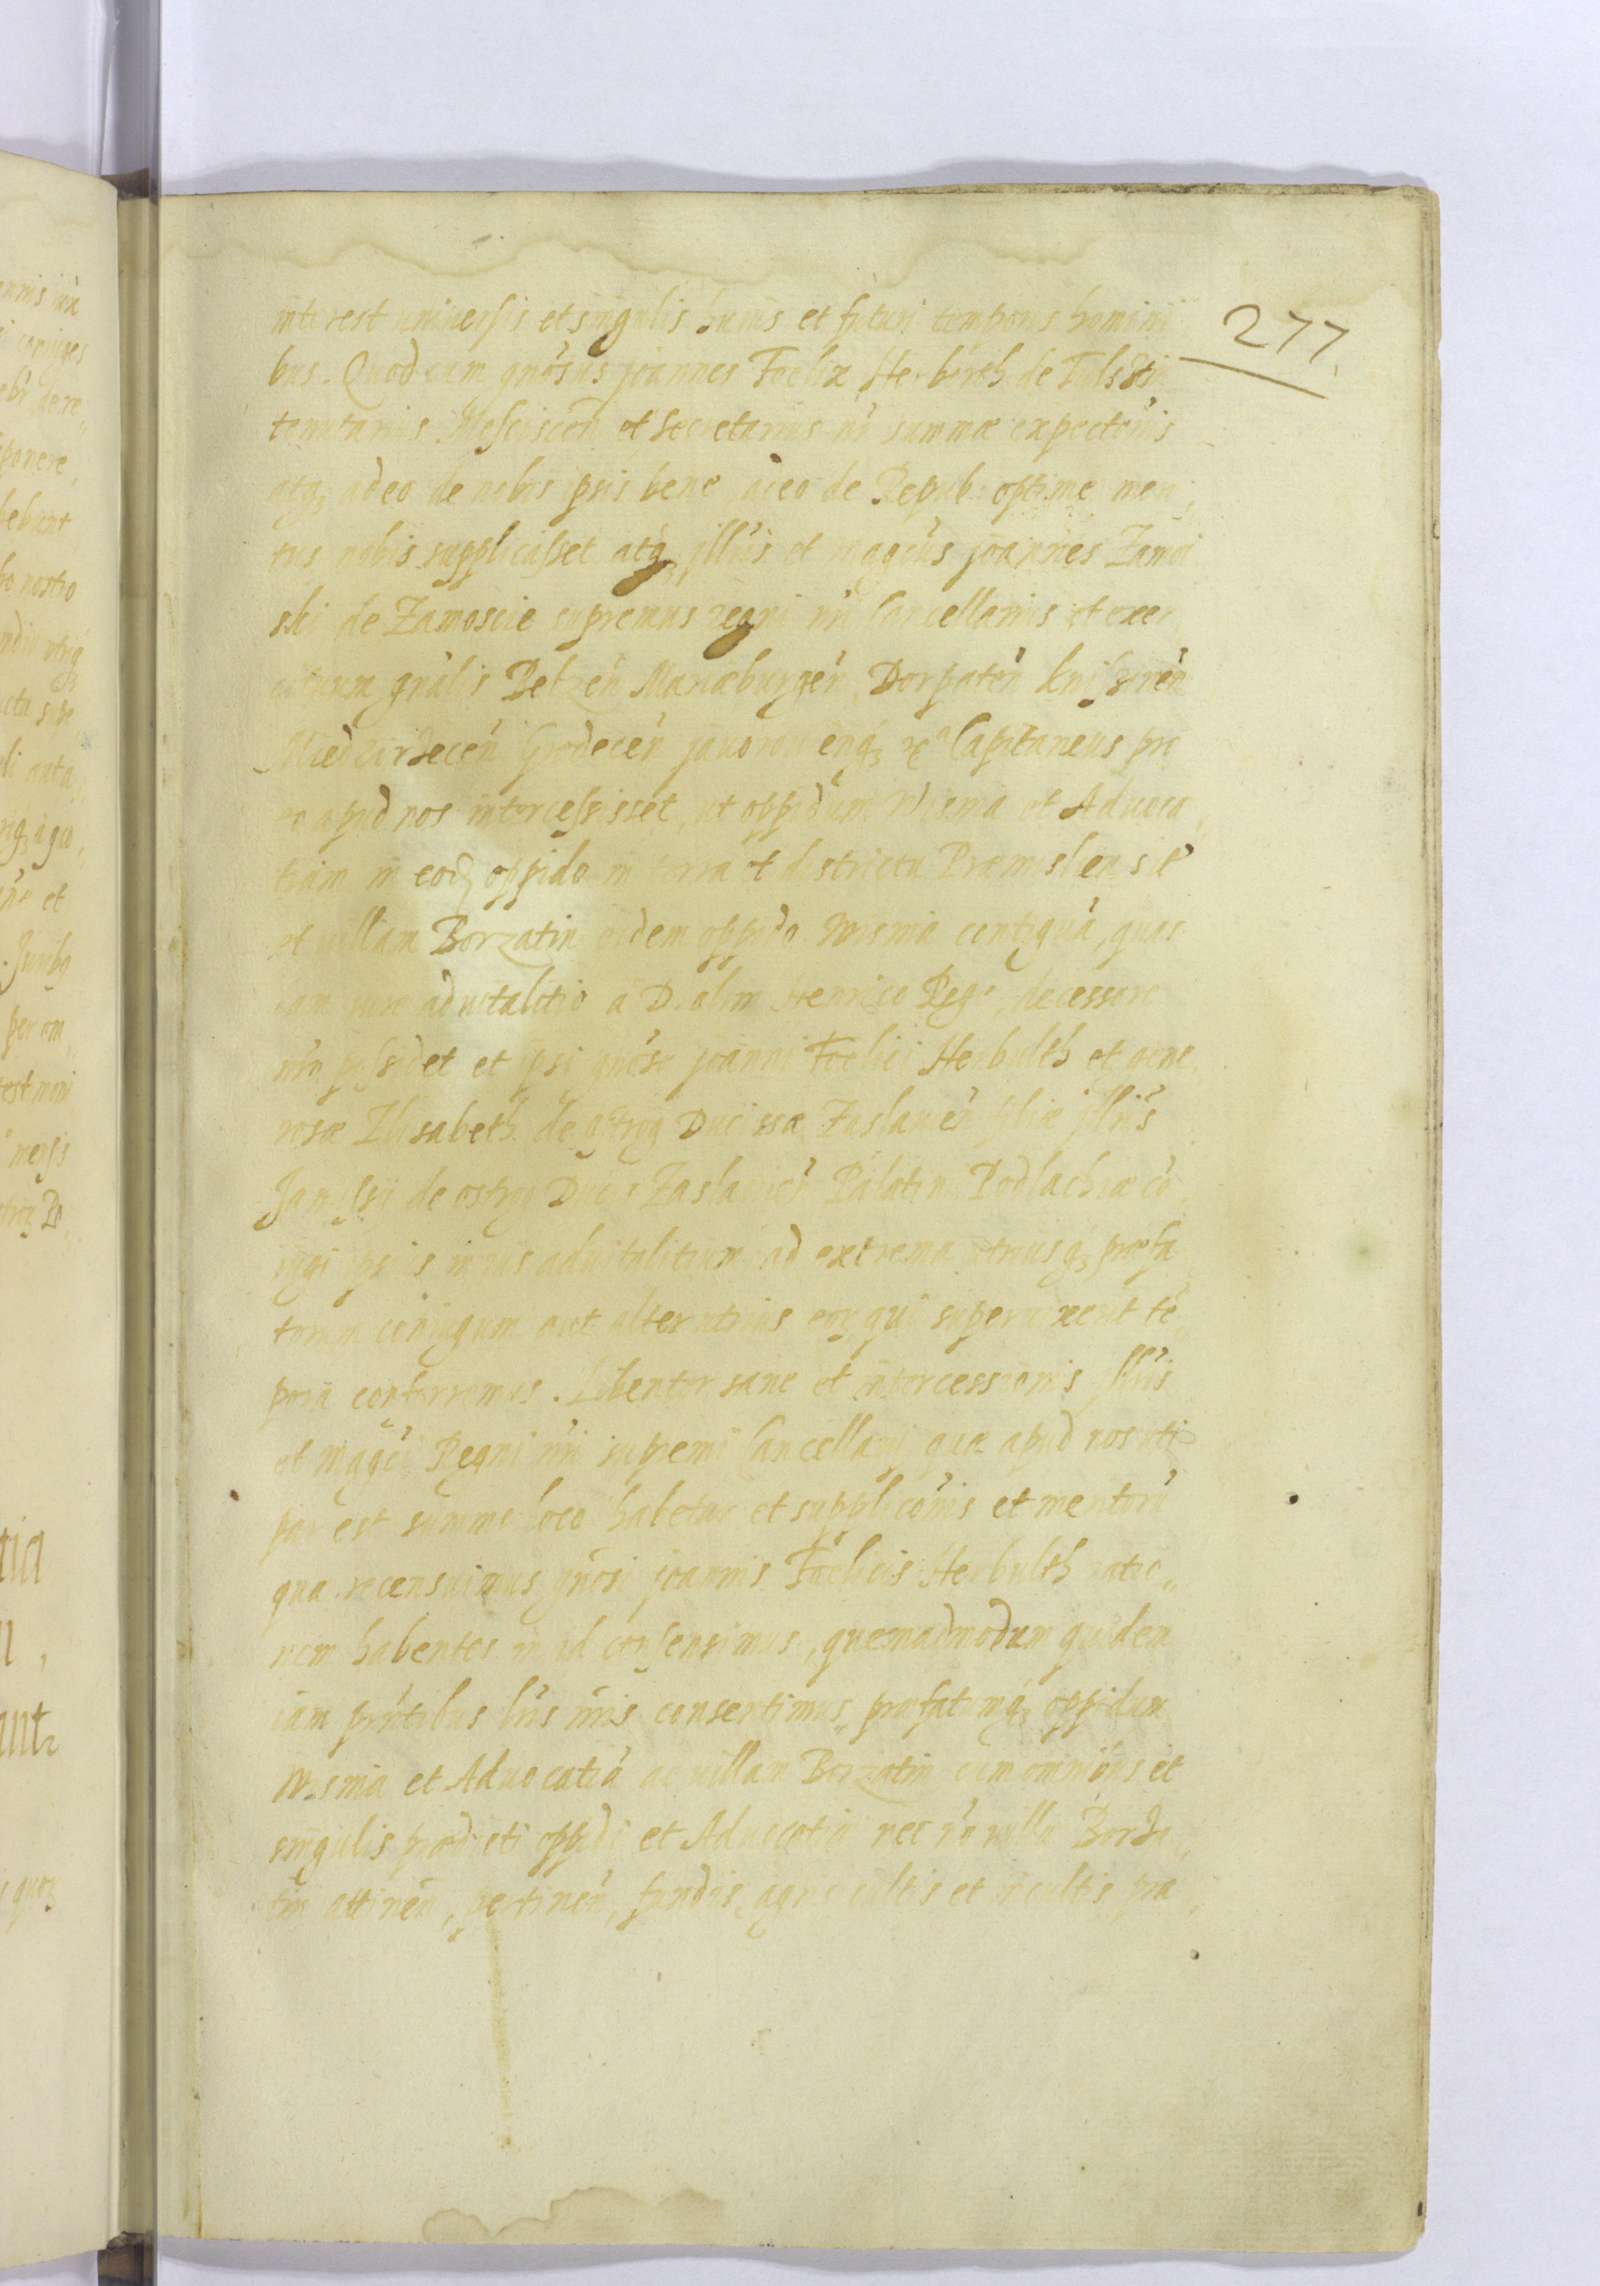 interest universis et singulis huius et futuri temporis homini
277
bus. Quod cum gnosus joannes Foelix Herbúrth de Fulsstin
tenutarius Mosciscen et Secretarius nr summæ expectonis
atq₃ adeo de nobis ipsis bene adeo de Repub: optime meri„
tus nobis supplicasset atq₃ jllris et magcus joannes Zamoi
ski de Zamoscie supremus regni nri Cancellarius et exer„
cituum gnalis Belzen Mariæburgen Dorpaten knissinen
Miedzirzecen Grodecen javorouienq₃ &c Capitaneus pro
eo apud nos intercessisset, ut oppidum Wisnia et Aduoca„
tiam in eodē oppido in terra et districtu Præmislensi
et uillam Borzatin eidem oppido Wisnia contiguā, quas
iam jure aduitalitio a D. olim Henrico Rege decessore
nro possidet et ipsi gnoso joanni Foelici Herbulth et gene„
rosæ Elisabeth de ostrog Ducissæ Zaslauien filiæ jllris
Janussij de ostrog Ducis Zaslauien Palatini Podlachiæ co„
iugi ipsius in ius aduitalitium ad extrema utriusq₃ præfa„
torum coniugum aut alterutrius eor qui superuixerit tē„
pora conferremus. Libenter sane et intercessionis jllris
et magci Regni nri supremi Cancellarij quæ apud nos uti
par est summo loco habetur et supplicōnis et meritorū
quæ recensuimus gnosi joannis Foelicis Herbulth ratio„
nem habentes in id consensimus, quemadmodum quidem
iam prñtibus lris nris consentimus, præfatumq₃ oppidum
Wisnia et Aduocatiā ac uillam Borzatin cum omnibus et
singulis prædicti oppidi et Aduocatiæ nec nō uillæ Borza„
tin attinen, pertinen, fundis, agris cultis et incultis pra„